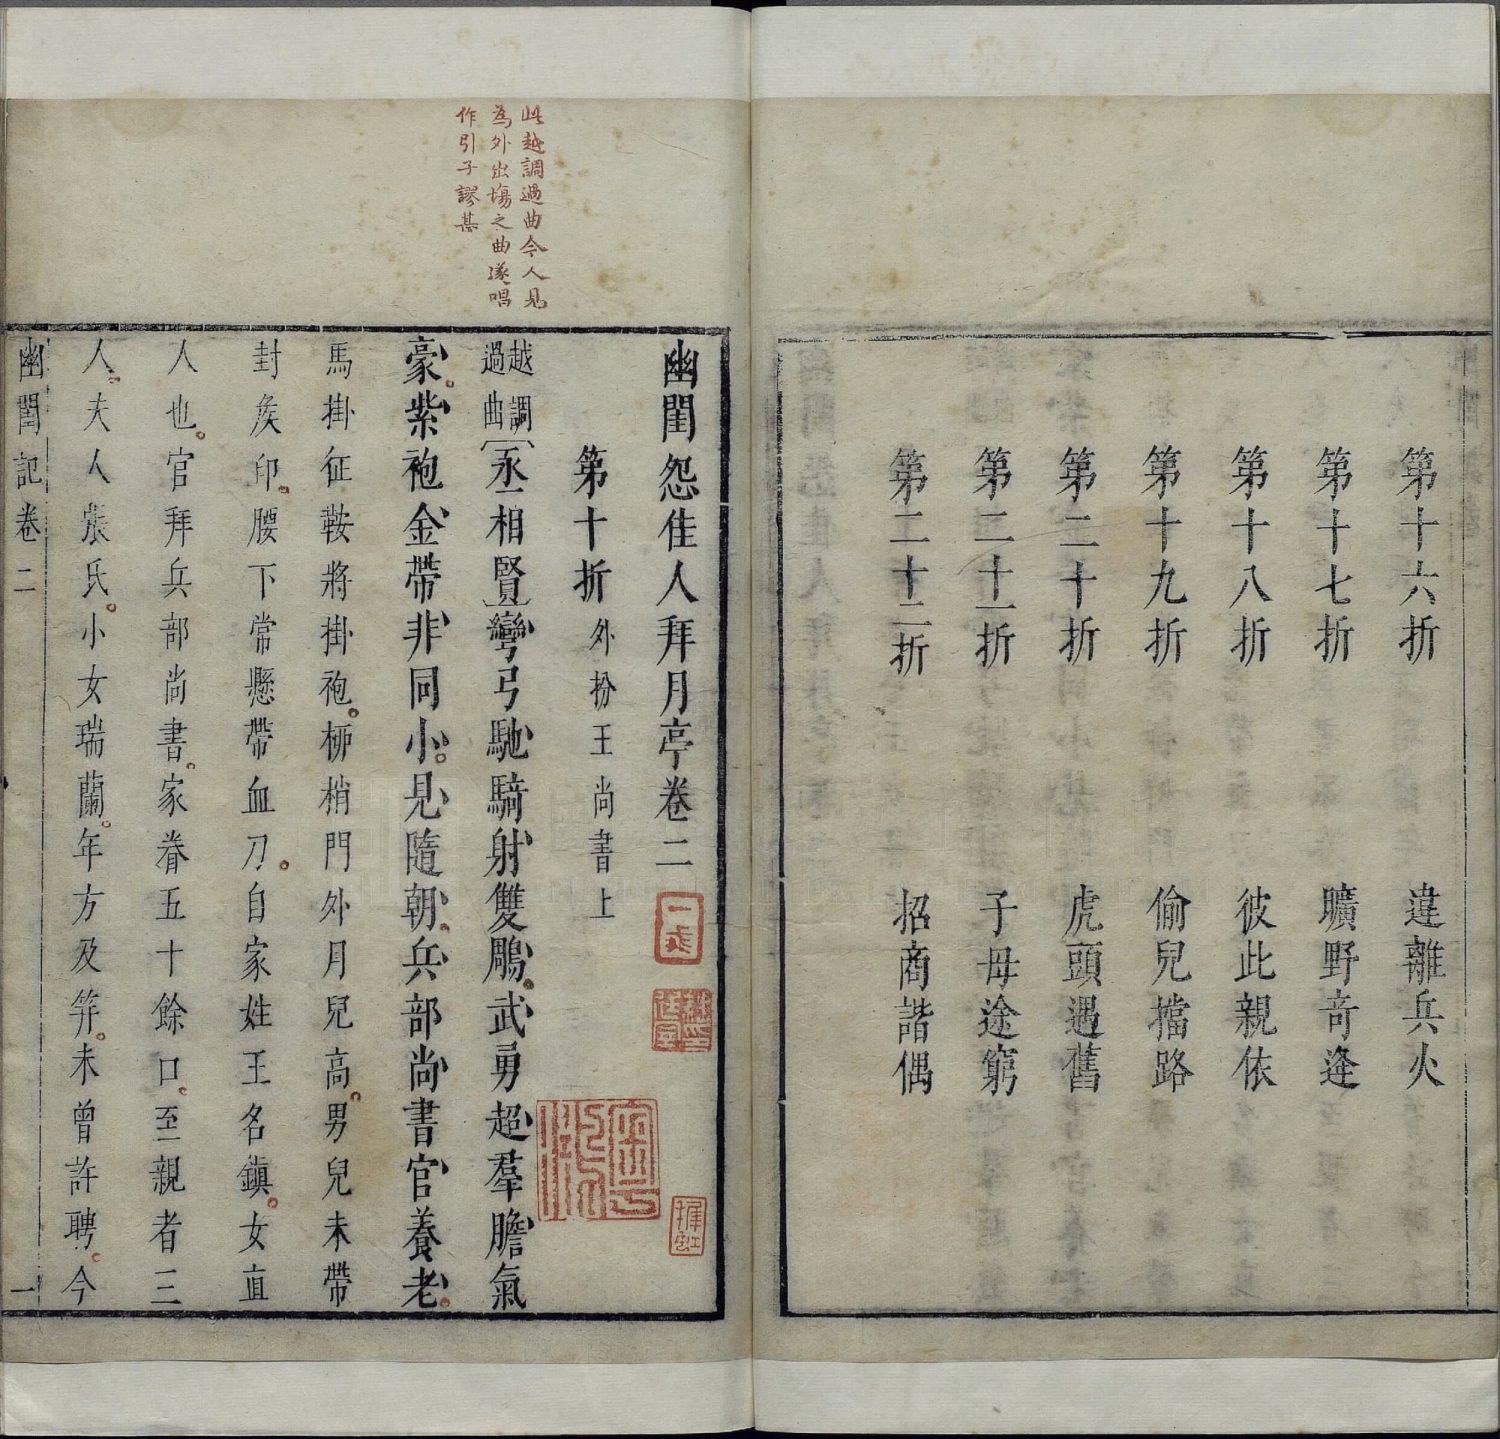 第十六折 違離兵火
第十七折 曠野竒逢
第十八折 彼此親依
第十九折 偷兒擋路
第二十折 虎頭遇舊
第二十一折 子母途窮
第二十二折 招商諧偶
此越調過曲今人見
為外出場之曲遂唱
作引子謬甚
幽閨怨佳人拜月亭卷二
第十折 外扮王尚書上
越調過曲〔丞相賢〕彎弓馳騎射雙鵰武勇超羣膽氣
豪紫袍金帶非同小見隨朝兵部尚書官養老
馬掛征鞍將掛袍栁梢門外月兒高男兒未帶
封矦印腰下常懸帶血刀自家姓王名鎭女直
人也官拜兵部尚書家眷五十餘口至親者三
人夫人張氏小女瑞蘭年方及笄未曾許聘今
幽閨記卷二 一